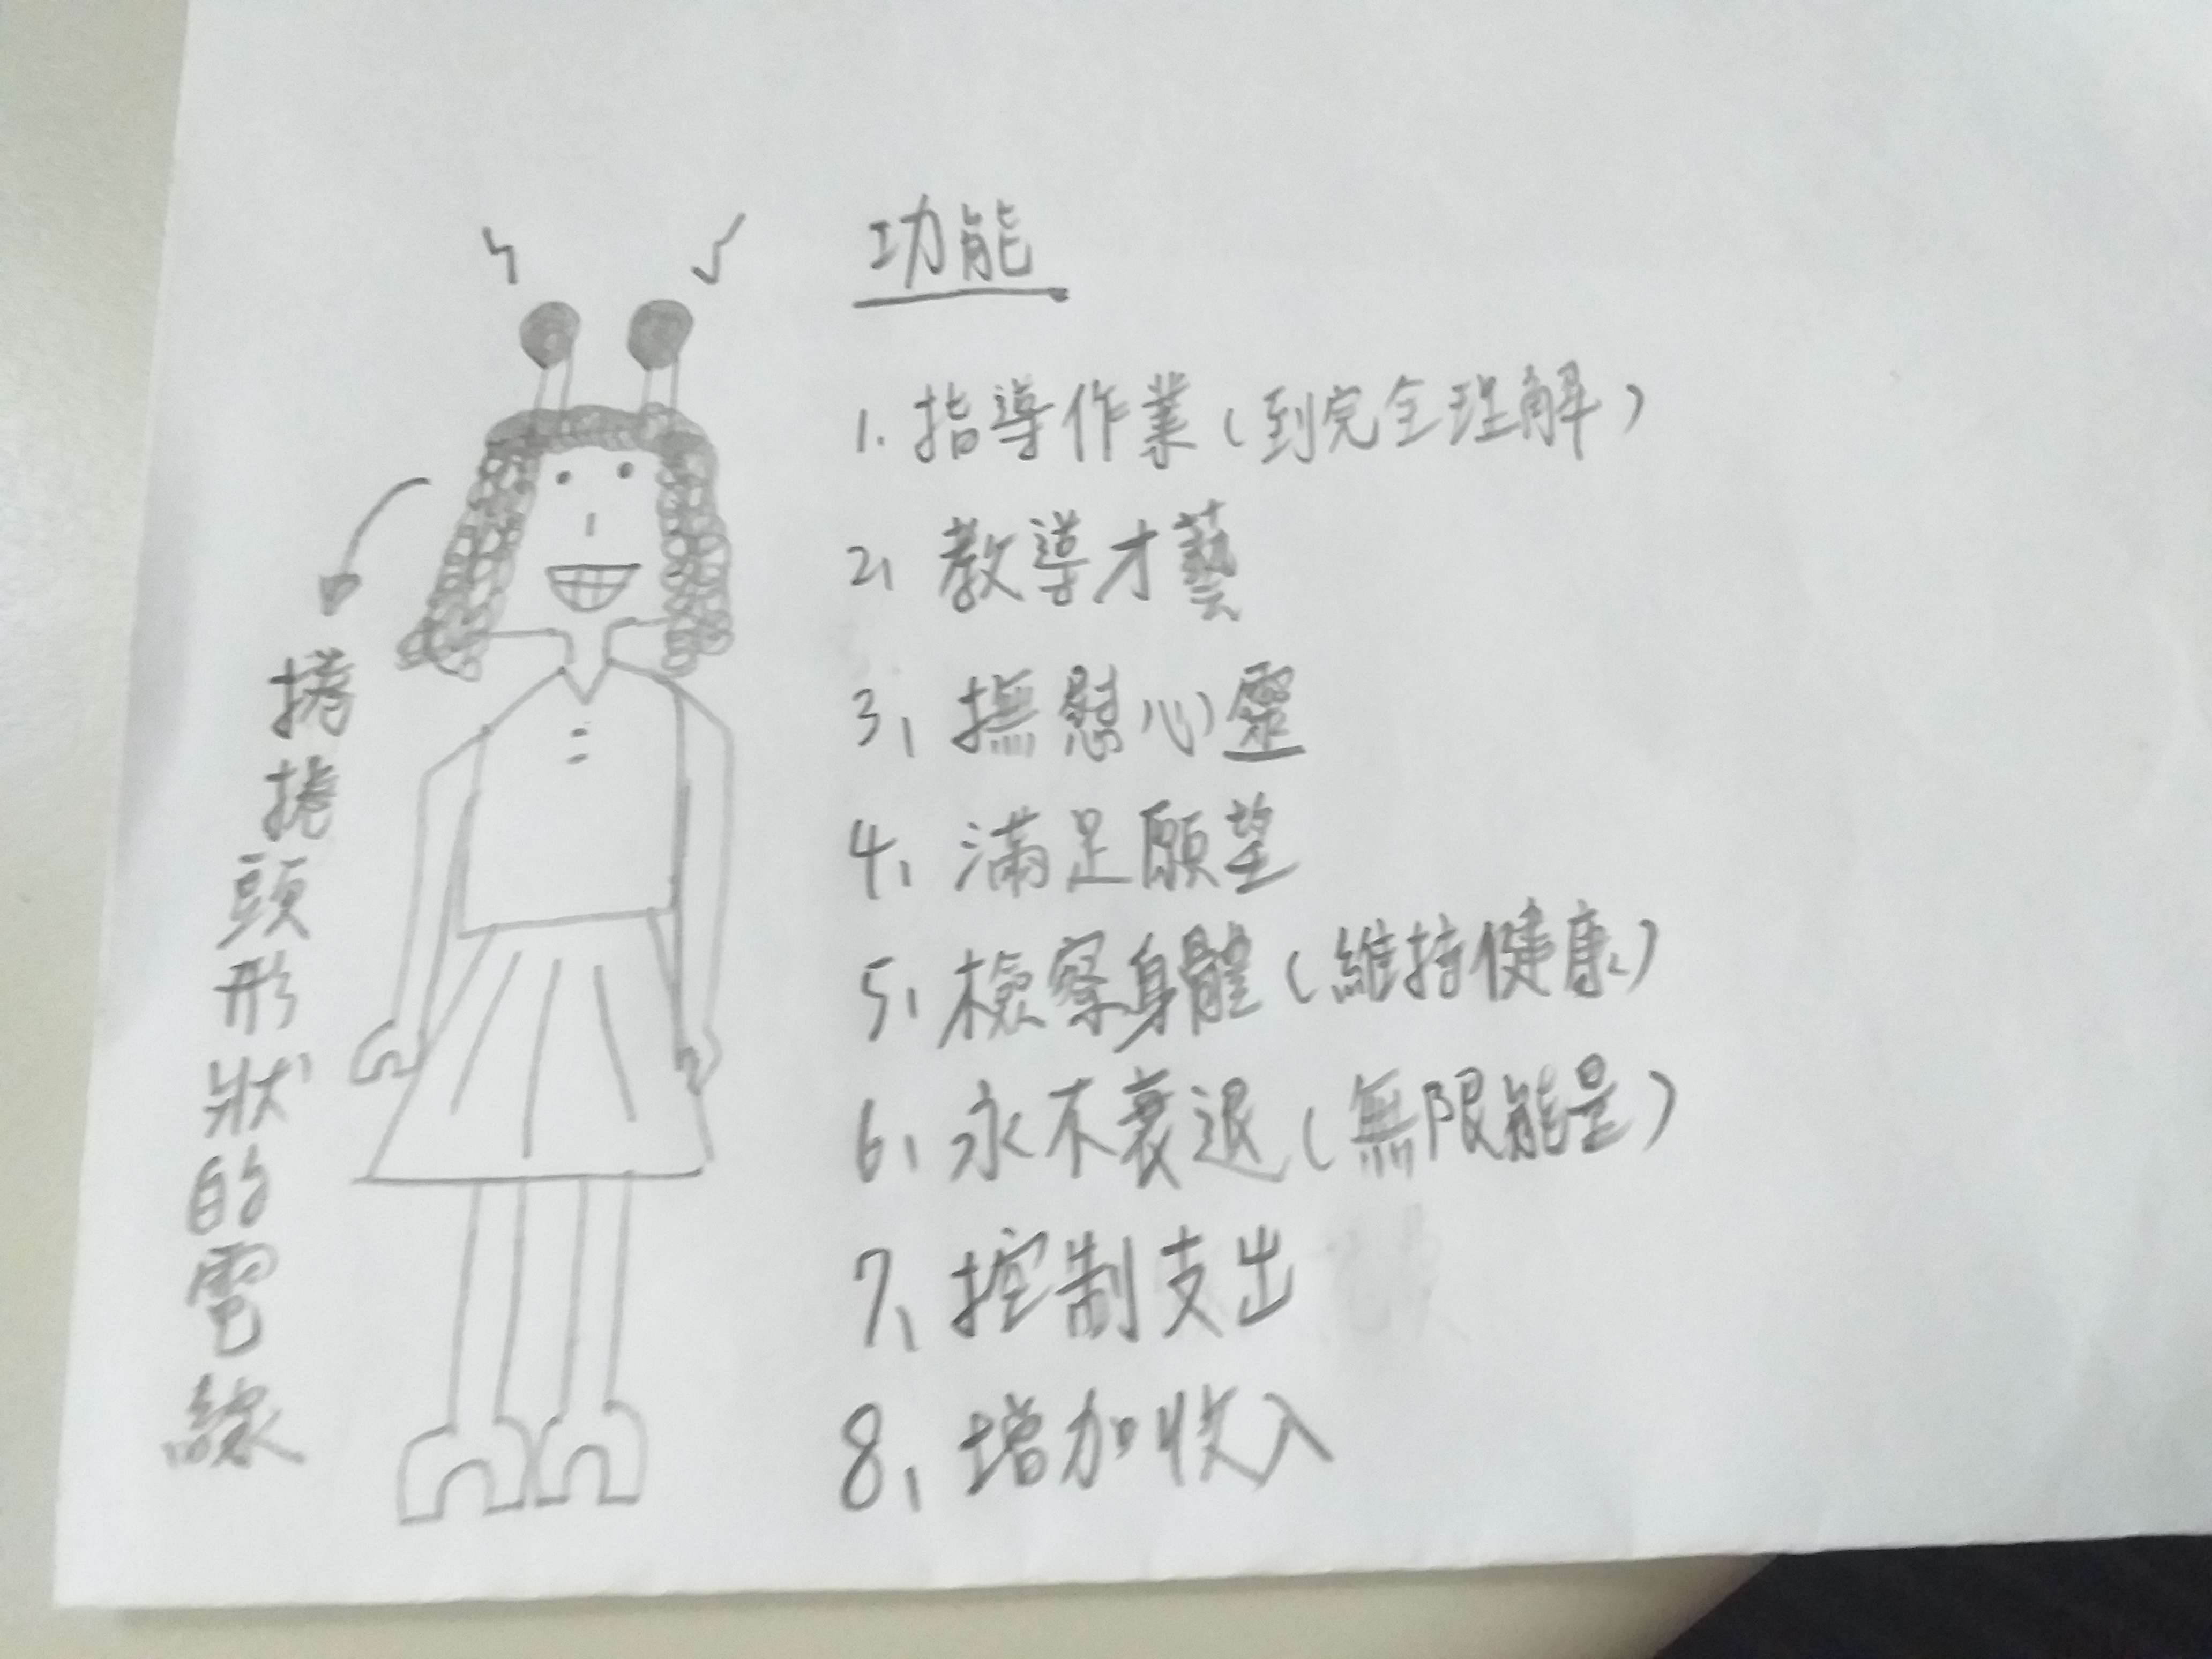 功能
1. 指導作業(到完全理解)
2、教導才藝
3、撫慰心靈
4、滿足願望
5、檢察身體(維持健康)
6、永不衰退(無限能量)
7、控制支出
8、增加收入
捲捲頭形狀的電線